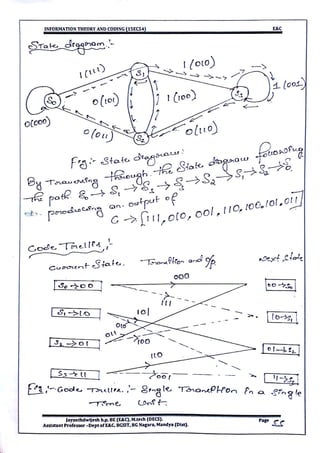 INFORMATION THEORY AND CODING (15EC54) E&C
State diagram:-
1(111)
1(010)
S1
S0
0(101)
1(100)
S3
1(001)
0(000)
0(011)
0(110)
S2
Fig:- State diagram:
By Traversing through the State diagram following
the path S0→S1→S3→S3→S2→S1→S2→S0
producing an output of
C → [111, 010, 001, 110, 100, 101, 011]
Code Trellis:-
Current State. Transition and o/p Next State
000
S0→00
00→S0
111
S1→10
101
10→S1
010
011
S2→01
100
01→S2
110
S3→11
001
11→S3
Fig:- Code Trellis:- Single Transition in a Single
Time Unit.
Assistant Professor -Dept of E&C, BGSIT, BG Nagara, Mandya (Dist).
Page